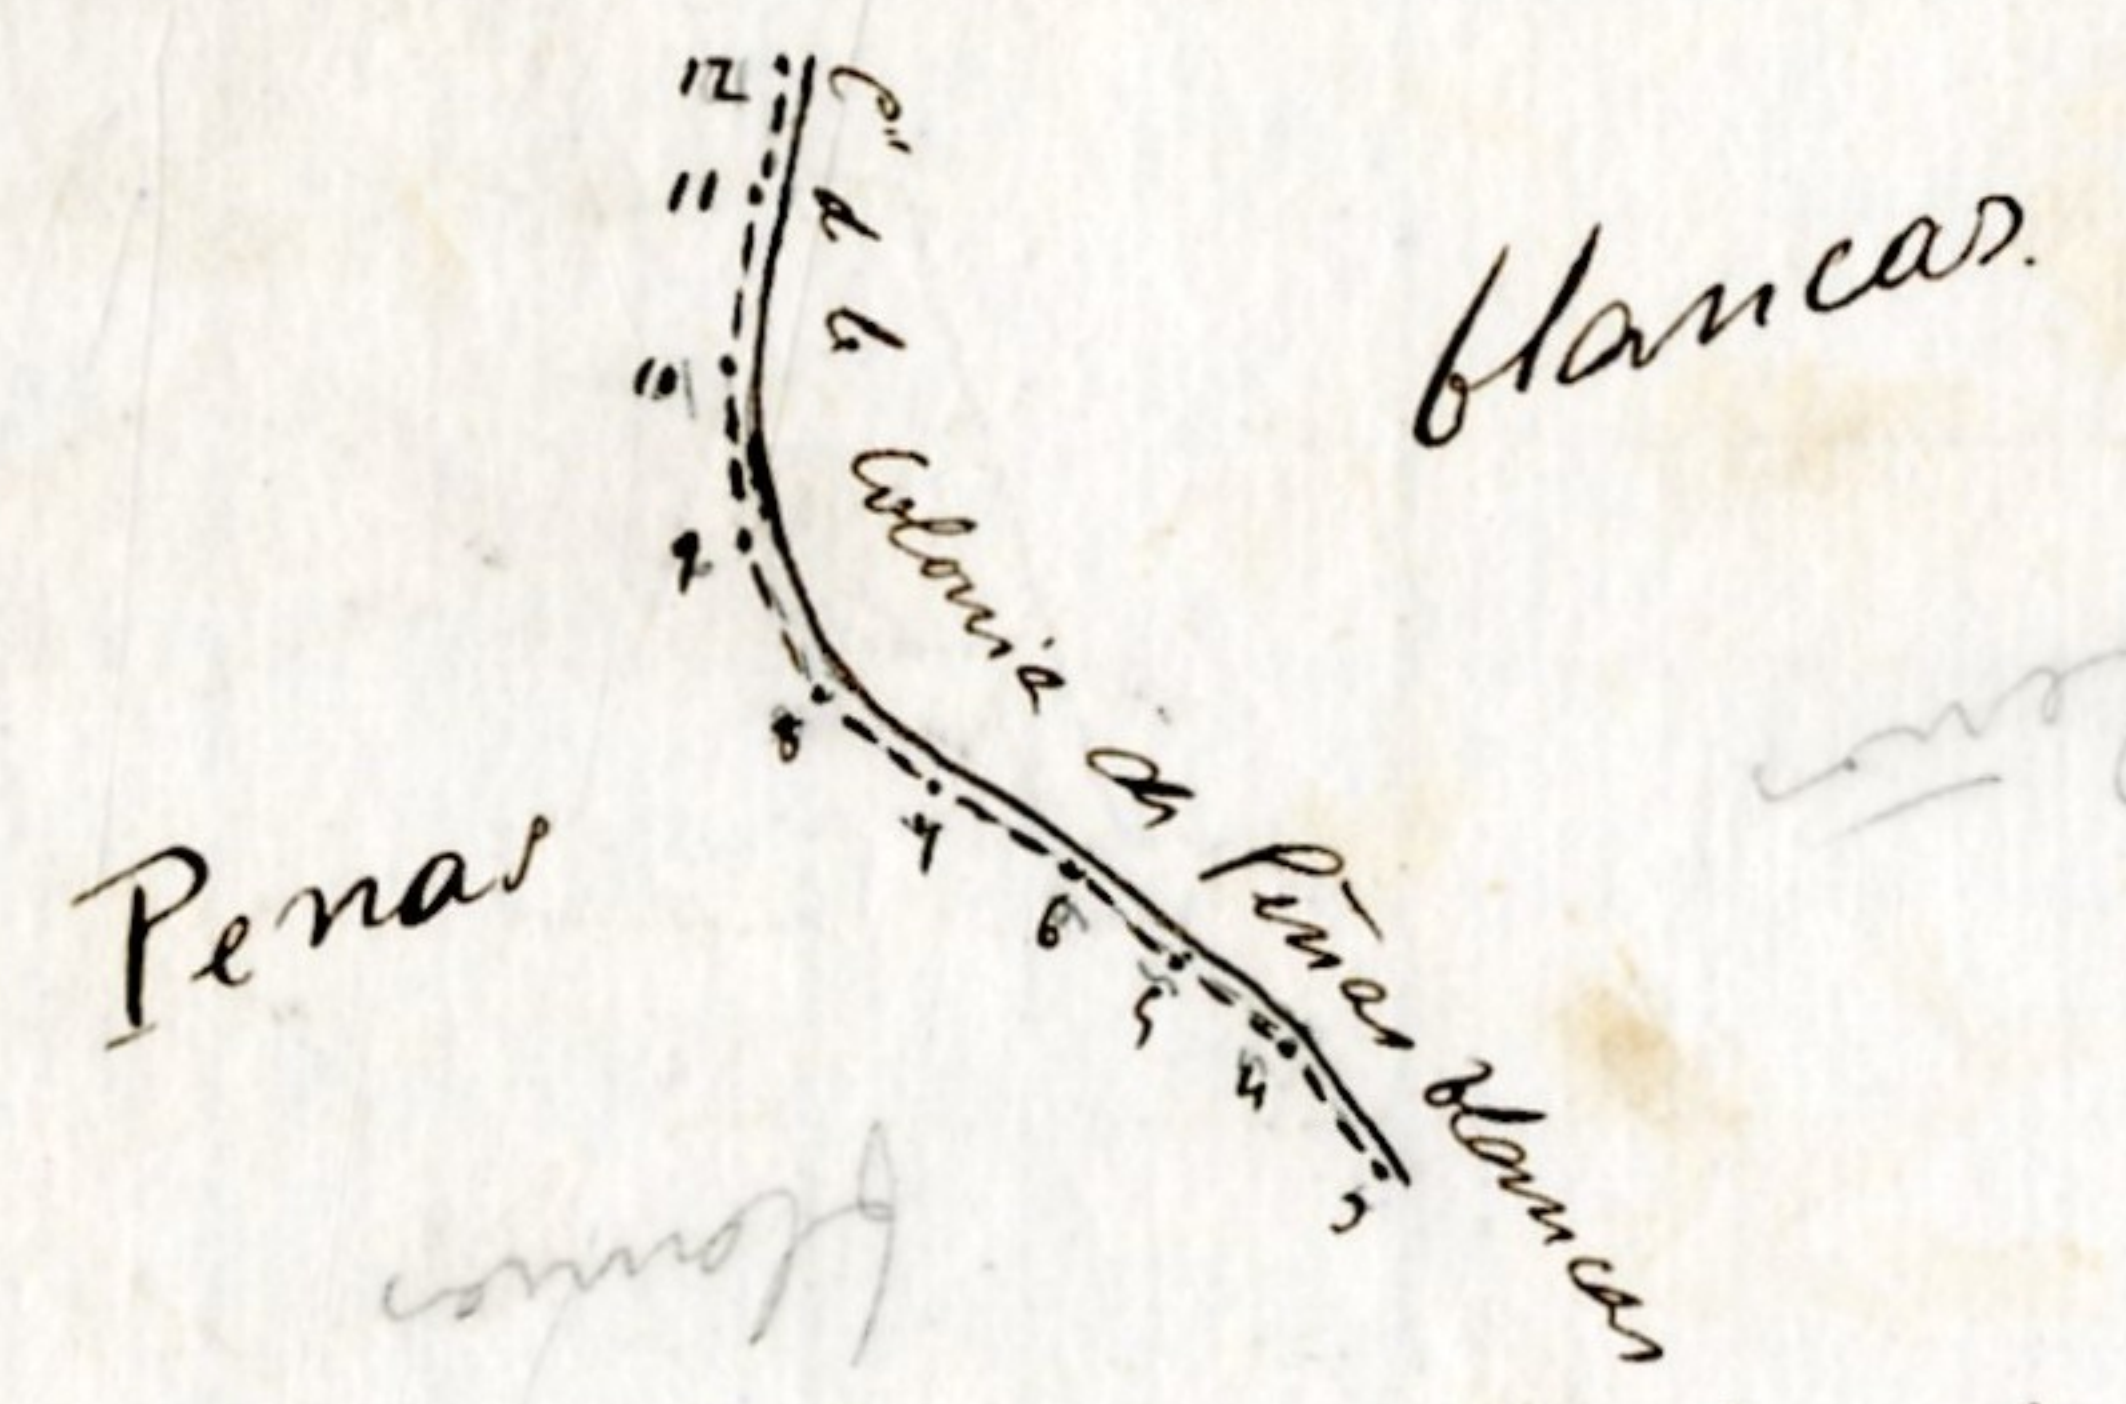 12
11
10
9
8
7
6
5
4
3
Co. de la Colonia de Peñas blancas
Penas
blancas.